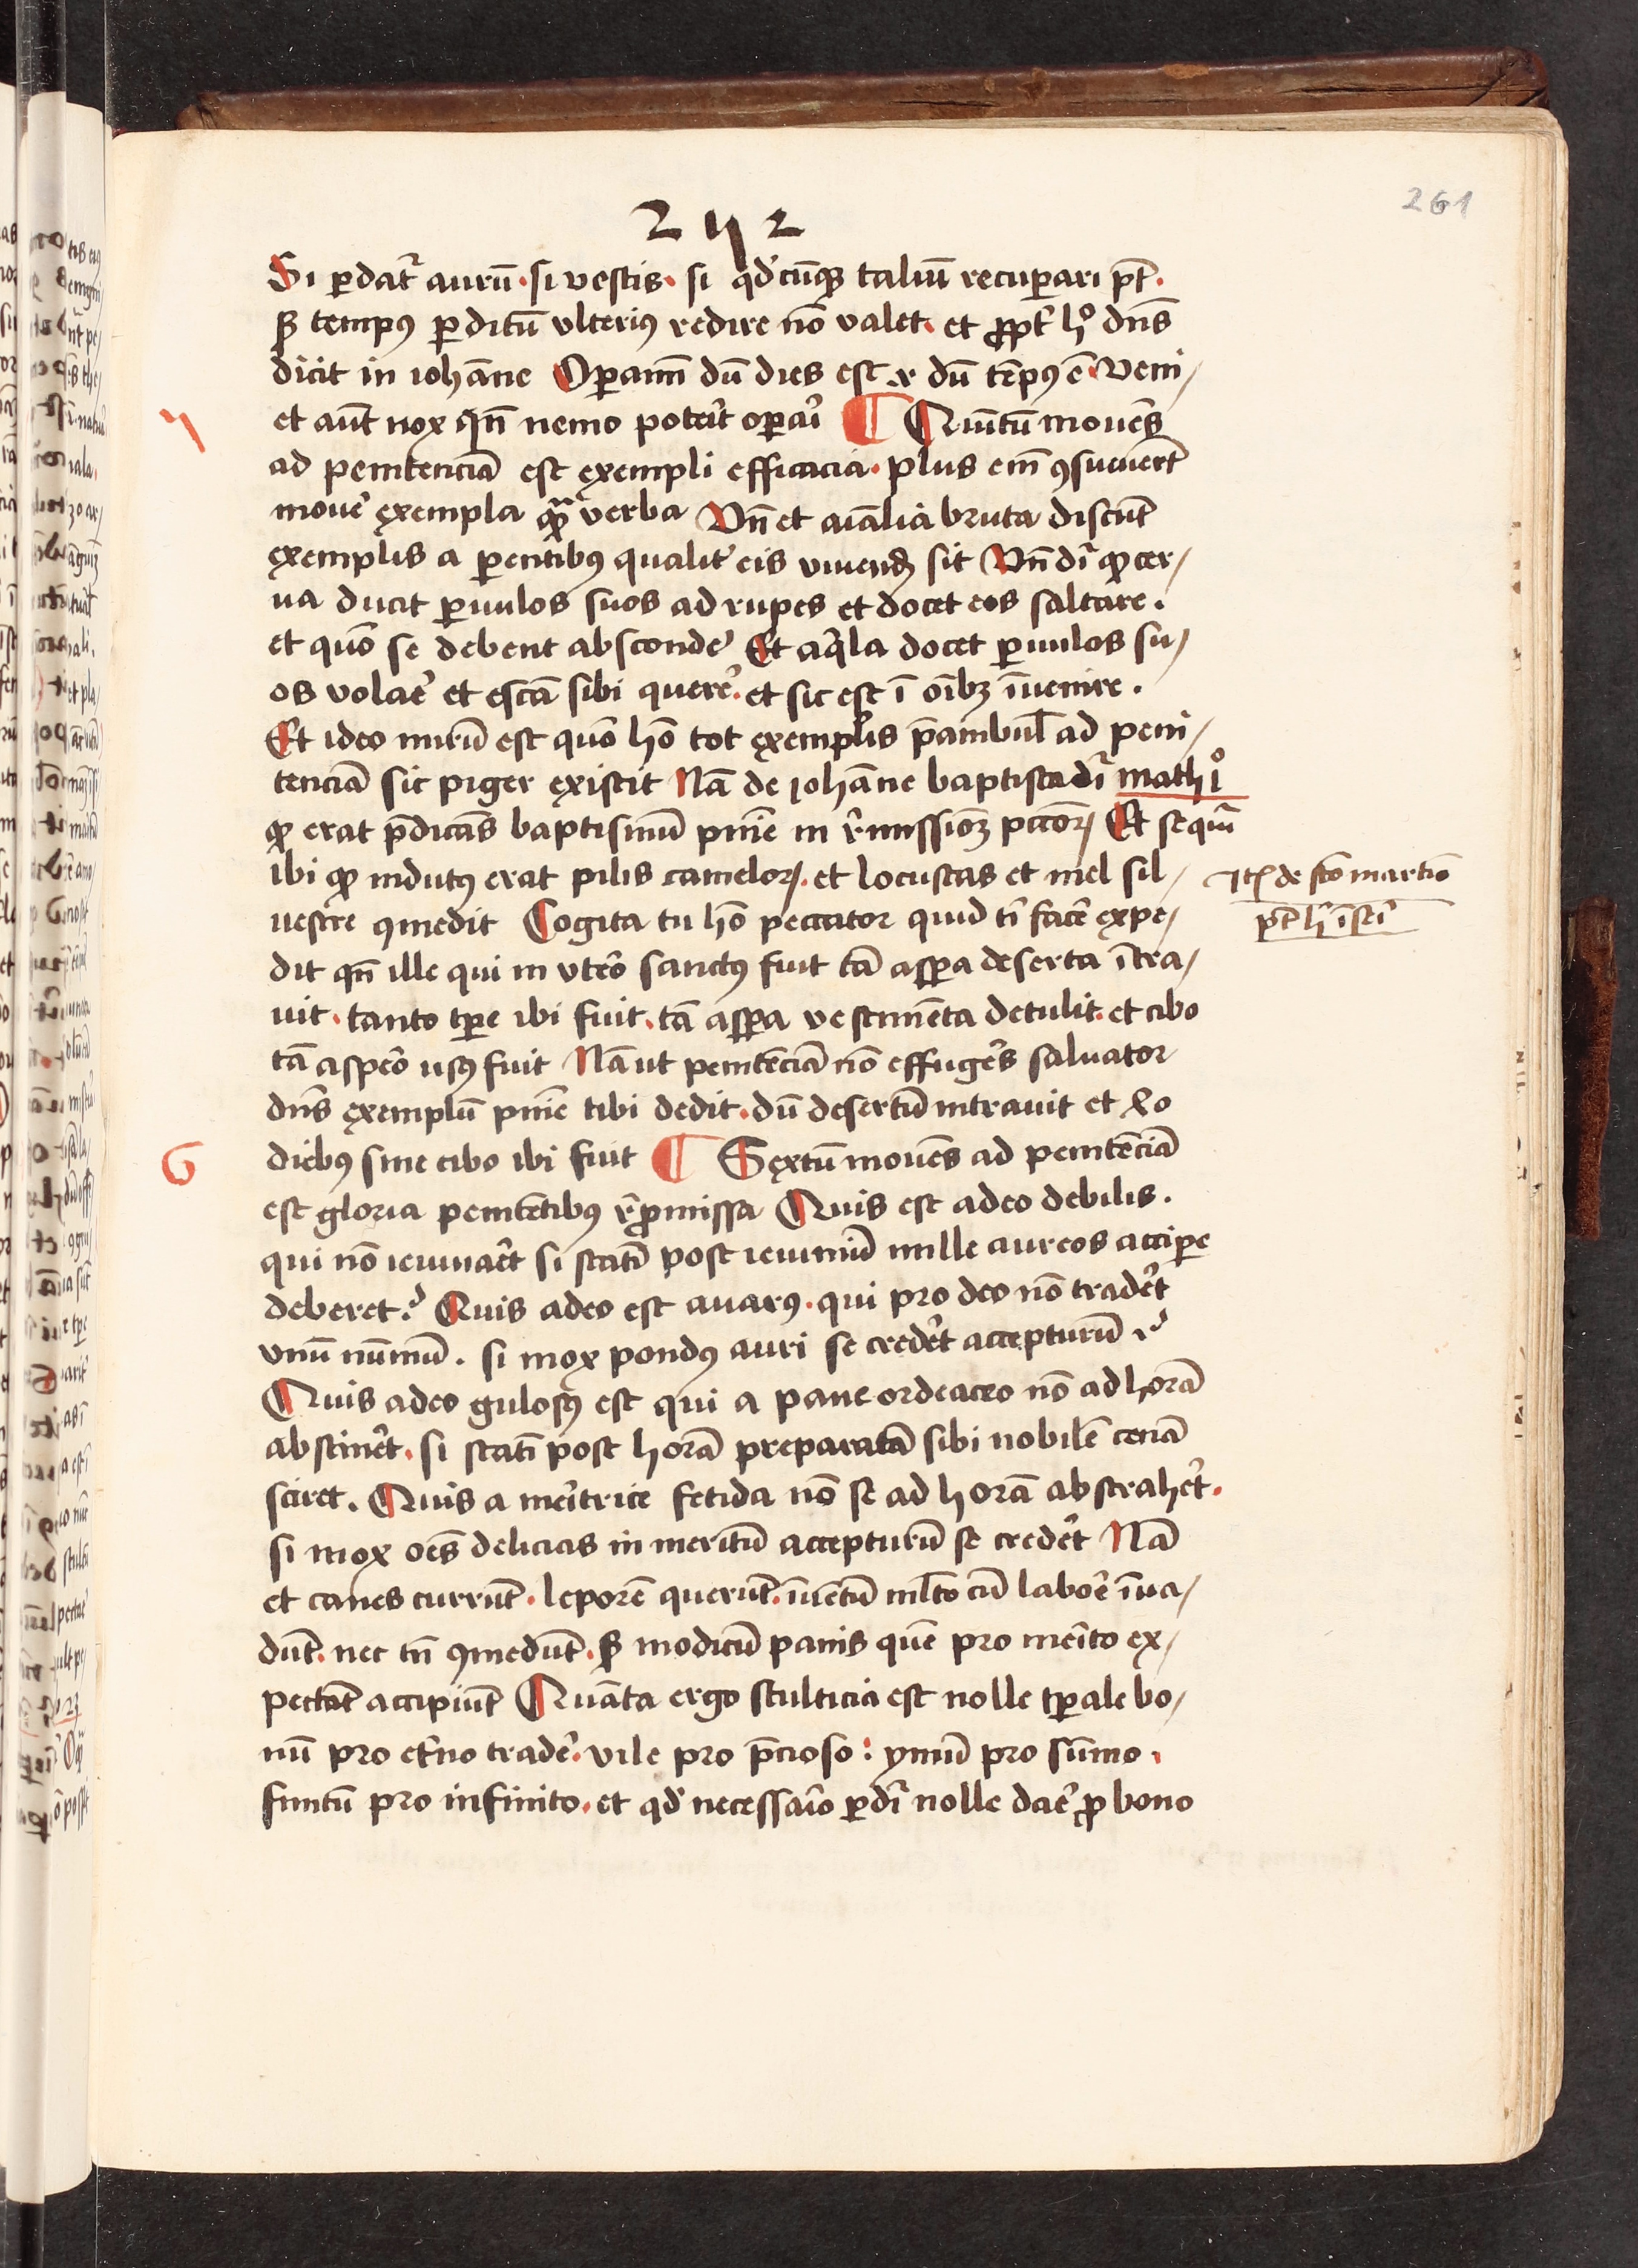 261
252
Si ꝑdat᷑ aurū · si vestis · si qd̛cūqꝫ taliū recuꝑari pt̄ ·
sꝫ tempꝰ ꝑditū vlterius redire nō valet · et ꝓpt̄ hͦ dn̄s
dicit in ioh̄āne Oꝑamī dū dies est ⁊ dū tēpꝰ ē · Veni/
et aūt nox qn̄ nemo pot̛it oꝑai᷑ ¶ Quītū mouēs
5
ad penitenciā est exempli efficacia · plus em̄ ꝯsueuert̄
moue᷑ exempla quā verba Vn̄ et aīalia bruta discūt
exemplis a ꝑentibꝰ qualit̛ eis viuendꝫ sit Vn̄ dr̄ ꝙ cer/
ua ducit ꝑuulos suos ad rupes et docet eos saltare ·
et quō se debent absconde᷑ Et aqͥla docet ꝑuulos su/
os volae᷑ et escā sibi quere᷑ · et sic est ī oībꝫ īuenire ·
Et ideo mirū est quō hō tot exemplis p̄ambul̄ ad peni/
tenciā sic piger existit Nā de ioh̄āne baptista dr̄ math iͦ
ꝙ erat p̄dicās baptismū pn̄ie in r̛missionꝫ pcc̄orꝫ Et sequit᷑
ibi ꝙ indutꝰ erat pilis camelorꝫ · et locustas et mel sil/
uestre ꝯmedit Cogita tu hō peccator quid t̄ face᷑ expe/
dit qn̄ ille qui in vt̛o sanctꝰ fuit tā asꝑa deserta ītra/
uit · tanto tꝑe ibi fuit · tā asꝑa vestimēta detulit · et cibo
tā asꝑo vsꝰ fuit Nā ut penitēciā nō effuge᷑s saluator
dn̄s exemplū pn̄ie tibi dedit · dū desertū intrauit et xlo
diebꝰ sine cibo ibi fuit ¶ Sextū mouēs ad penitēciā
6
est gloria penitētibꝰ r̛ꝓmissa Quis est adeo debilis ·
qui nō ieiunae᷑t si statī post ieiuniū mille aureos acciꝑe
deberet? Quis adeo est auarꝰ · qui pro deo nō trade᷑t
vnū nūmū · si mox pondꝰ auri se crede᷑t accepturū?
Quis adeo gulosꝰ est qui a pane ordeaceo nō ad horā
abstine᷑t · si statī post horā preparatā sibi nobilē cenā
sciret · Quis a me᷑trice fetida nō se ad horā abstrahe᷑t ·
si mox oēs delicias in meritū accepturū se crede᷑t Nā
et canes currūt · leporē querūt · īuētū ml̄to cū laboe᷑ īua/
dūt · nec tn̄ ꝯmedūt · sꝫ modicū panis quē pro me᷑ito ex/
pectāt accipiūt Quāta ergo stulticia est nolle tꝑale bo/
nū pro et̛no trade᷑ · vile pro p̄cioso : ymū pro sūmo ·
finitū pro infinito · et qd̛ necessai᷑o ꝑdi᷑ nolle dae᷑ ꝓ bono
Itꝫ de sc̄o martīo